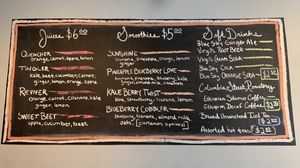 Juices $6.00
QUENCHER
orange, carrot, apple, lemon
TINGLER
kale, beet, cucumber, carrot,
ginger, lemon, orange
REVIVER
orange, carrot, cilantro, kale
ginger, lemon
SWEET BEET
apple, cucumber, beet
Smoothies $5.00
SUNSHINE
banana, pineapple, orange, lemon
ginger
PINEAPPLE BLUEBERRY LOVE
banana, blueberry, pineapple,
kale, lemon
KALE BERRY TWIST
kale, strawberry, banana, lemon
BLUEBERRY COBBLER
blueberry, banana, almond milk
oats, [cinnamon optional]
Soft Drinks
Blue Sky Ginger Ale
Virgil's Root Beer
Virgil's Cream Soda
Blue Sky Cola
Blue Sky Orange Soda
$2.50
Columbia Street Roastery
Ethiopian Sidamo Coffee
Ethiopian Decaf Coffee
$2.00
Brewed Unsweetened Iced Tea
$2.00
Assorted hot teas
$2.00